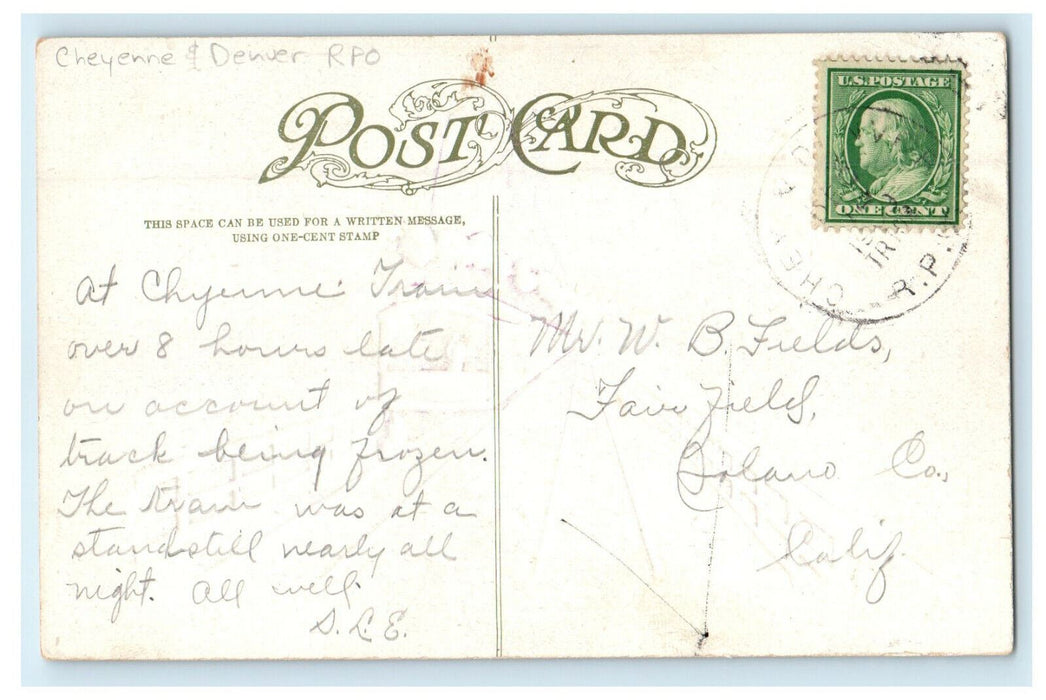 Cheyenne & Denver RPO
POST CARD
U.S. POSTAGE
ONE CENT
CHEY
R.P.
THIS SPACE CAN BE USED FOR A WRITTEN MESSAGE,
USING ONE-CENT STAMP
At Chyenne Train
over 8 hours late
on account of
track being frozen.
The train was at a
standstill nearly all
night. All well.
S. L. E.
Mr. W. B. Fields,
Fairfield,
Solano Co.,
Calif.